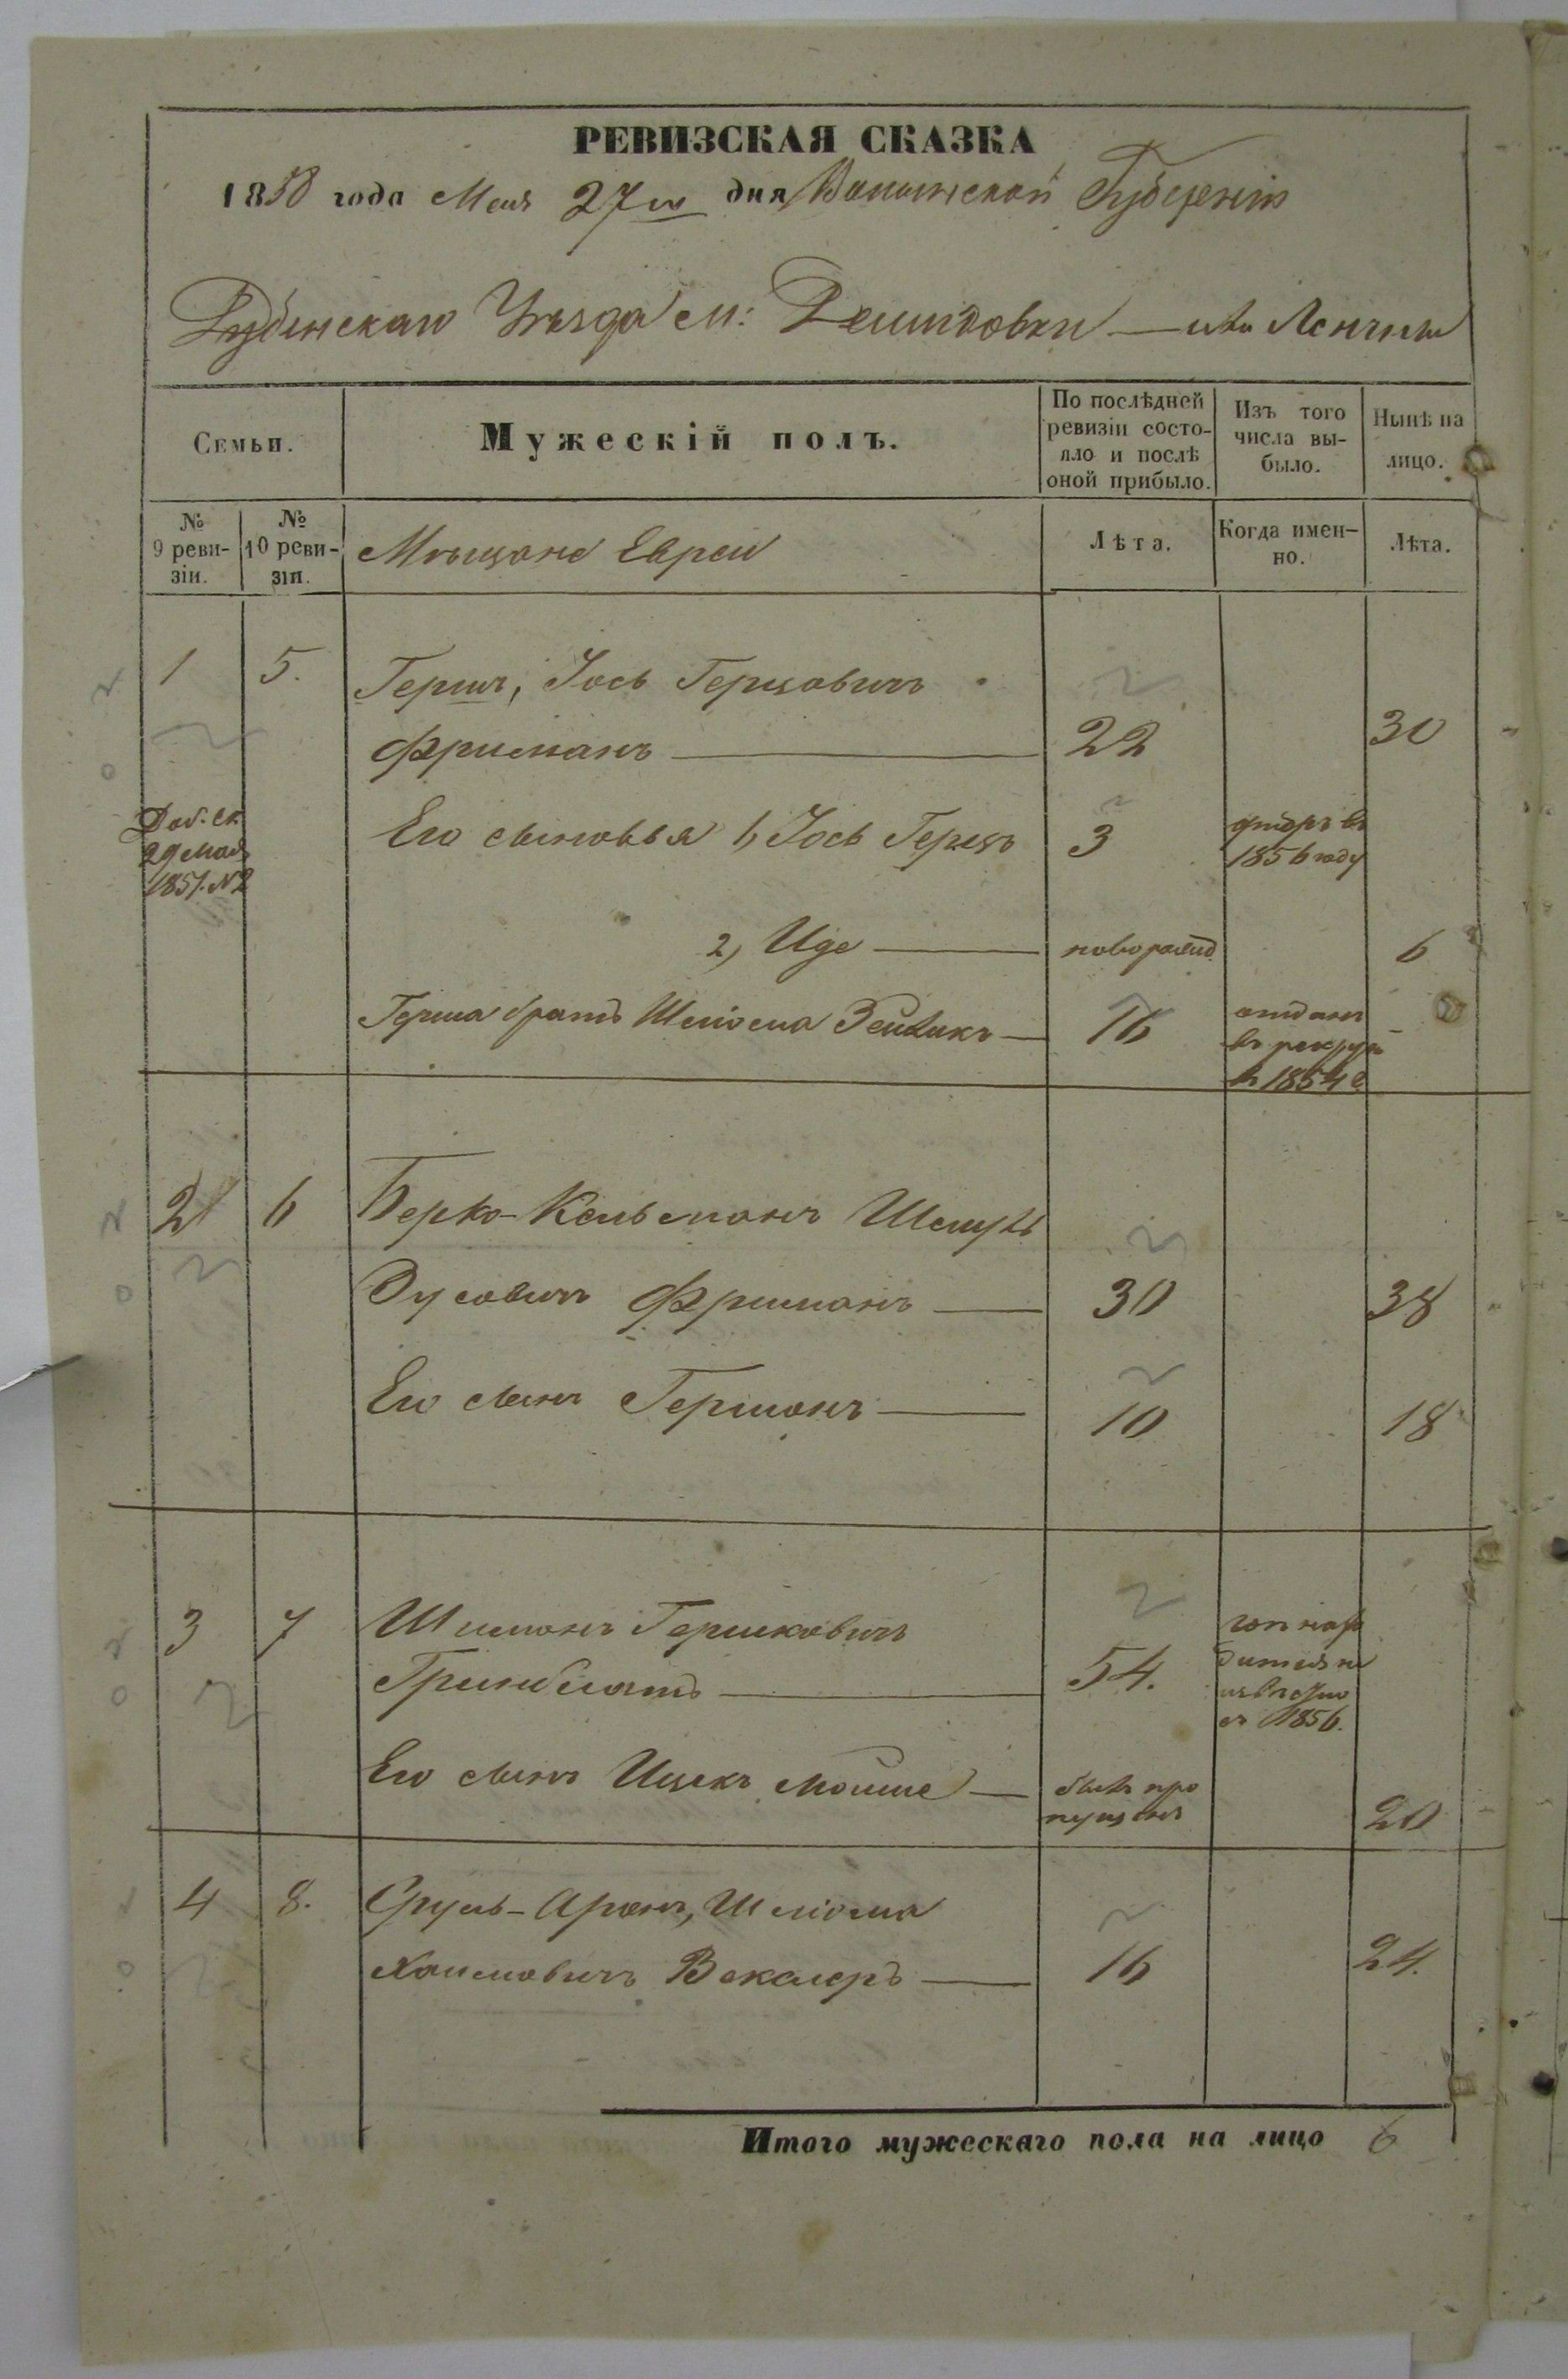 РЕВИЗСКАЯ СКАЗКА
1858 года Мая 27го дня Волынской Губерніи
Дубенскаго Уѣзда м: Демидовки —
Семьи.
Мужескій полъ.
По послѣдней
ревизіи состо-
яло и послѣ
оной прибыло.
Изъ того
числа вы-
было.
Нынѣ на
лицо.
№
9 реви-
зіи.
№
10 реви-
зіи.
Мѣщане Евреи
Лѣта.
Когда имен-
но.
Лѣта.
1 5. Герш, Іось Герцовичъ
Фриманъ — 22 30
Его сыновья 1, Іось Герцъ 3 умеръ въ
1856 году
Доб. ск.
29 мая
1851. №2
2, Иде — новорожд. 6
Герша братъ Шліома Зейликъ — 16 отданъ
въ рекруты
в 1854 г.
2 6 Берко-Кельманъ Шмуль
Дусовичъ Фриманъ — 30 38
Его сынъ Германъ — 10 18
3 7 Шимонъ Гершковичъ
Гринблатъ — 54.
съ 1856.
Его сынъ Ицекъ Мойше — былъ про
пущенъ 20
4 8. Сруль-Аронъ, Шліома
Хаимовичъ Векслеръ — 16 24.
Итого мужескаго пола на лицо 6